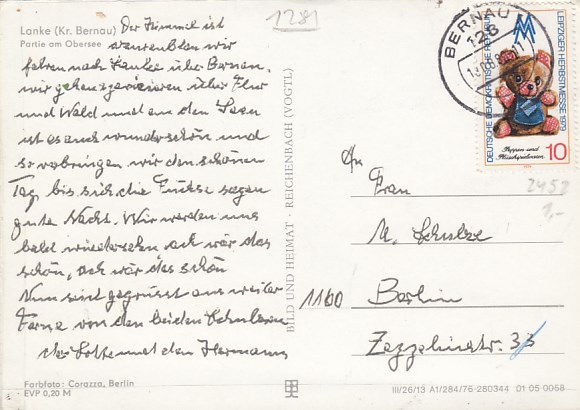 1281
Lanke (Kr. Bernau)
Partie am Obersee
Der Himmel ist
azurenblau wir
fahren nach Lanke über Bernau,
wir gehen spazieren über Flur
und Wald und an den Seen
ist es auch wunderschön und
so verbringen wir den schönen
Tag, bis sich die Füchse sagen
gute Nacht. Wir werden uns
bald wiedersehen ach wär das
schön, ach wär das schön
Nun seid gegrüsst aus weiter
Ferne von den beiden
das Lotte und den Hermann
Farbfoto: Corazza, Berlin
EVP 0,20 M
BILD UND HEIMAT · REICHENBACH (VOGTL)
BERNAU
128
DEUTSCHE DEMOKRATISCHE REPUBLIK
LEIPZIGER HERBSTMESSE 1979
Puppen und
Plüschgidevien
10
2452
1,-
An
Frau
M. Schulze
1160 Berlin
Zeppelinstr. 33
III/26/13 A1/284/76-280344 01 05 0058